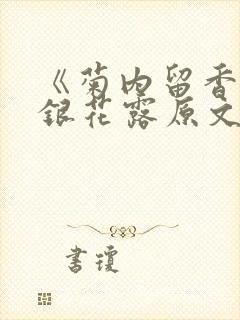 《菊内留香
银花露原文
书瓊